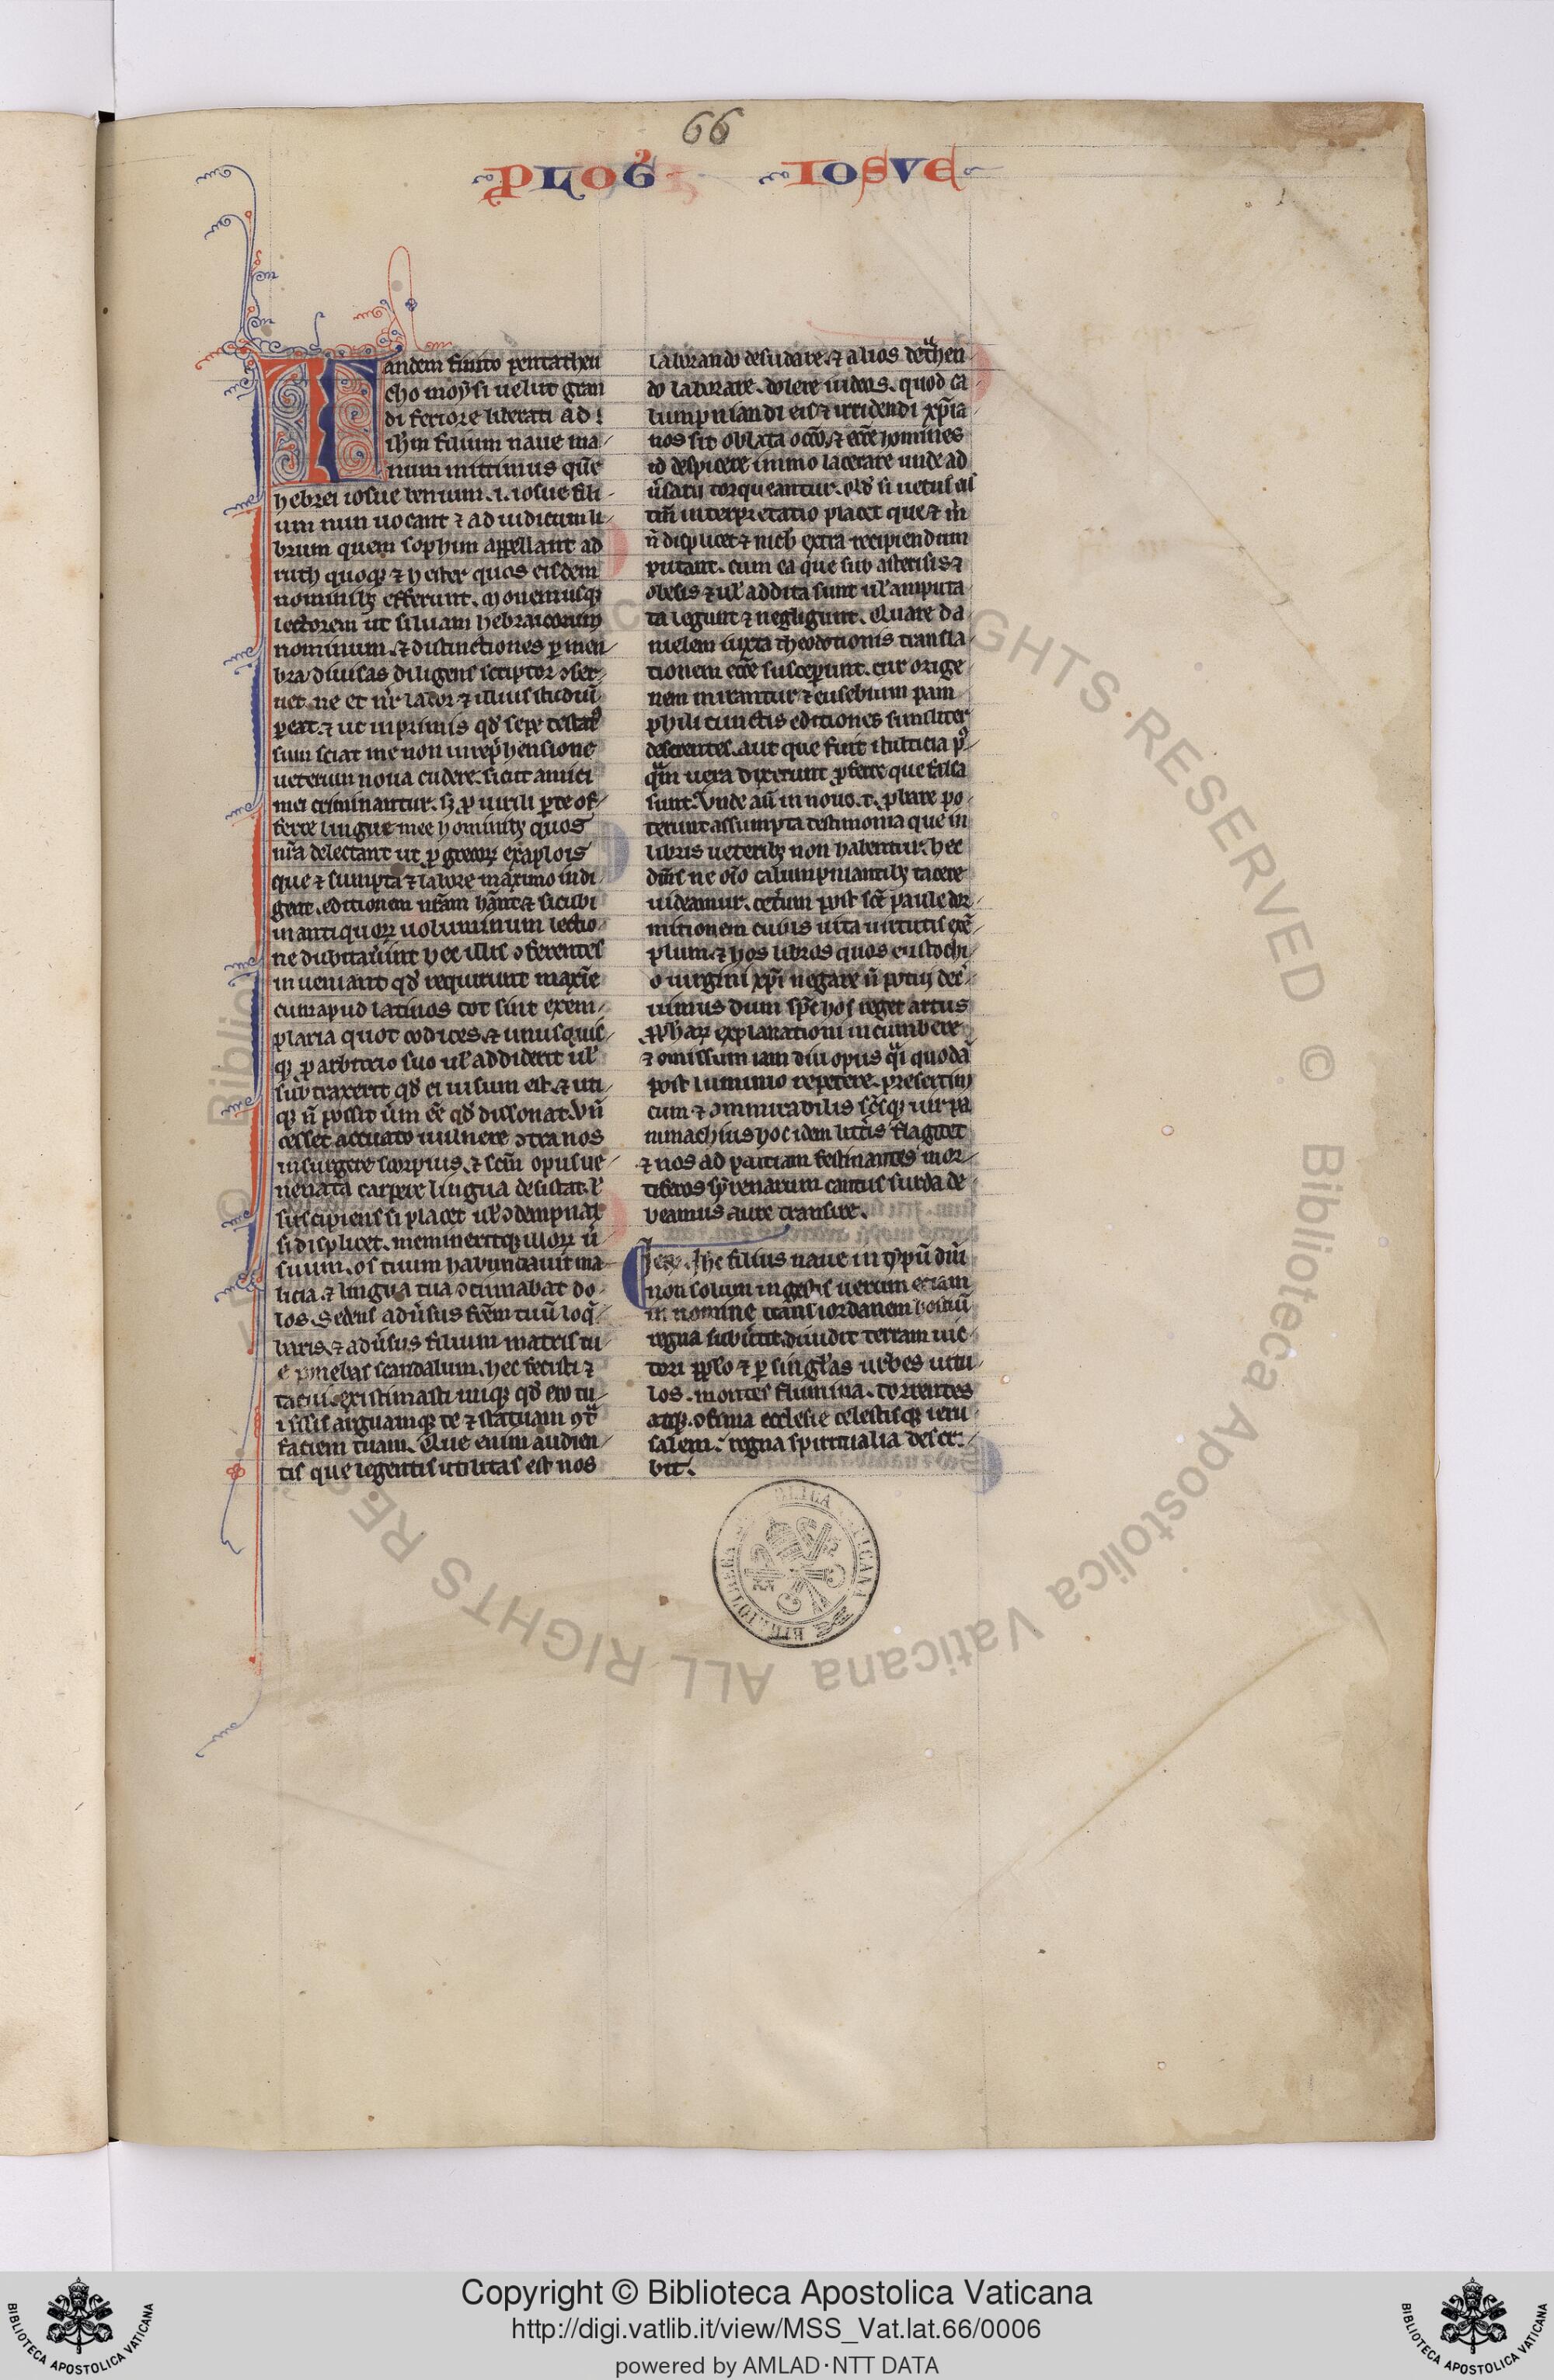 66
PLOG̉ IOSVE
Tandem finito pentatheu
cho moysi uelut gran
di fenore liberati ad
ih̄m filium naue ma
num mittimus quē
hebrei iosue bennum .i. iosue fili
um nun uocant ⁊ ad iudicum li
brum quem sophtim appellant ad
ruth quoqꝫ ⁊ hester quos eisdem
nominibꝫ efferunt. Monemusqꝫ
lectorem ut siluam hebraicorum
nominum. ⁊ distinctiones ꝑ men
bra diuisas diligens scriptor ↄser
uet. ne et nr̄ labor ⁊ illius studiū
ꝑeat. ⁊ ut inprimis qd̄ sepe testatꝰ
sum sciat me non in rep̄hensione
ueterum noua cudere. sicut amici
mei criminantur. sꝫ ꝓ uirili ꝑte of
ferre lingue mee hominibꝫ quos
nr̄a delectant ut ꝓ grecoꝝ exaplois
que ⁊ sumptu ⁊ labore maximo indi
gent. editionem nr̄am hānt ⁊ sicubi
in antiquoꝝ uoluminum lectio
ne dubitauerint hec illis ↄferentes
inueniant qd̄ requirunt maxīe
cum apud latinos tot sint exem
plaria quot codices. ⁊ unusquis
qꝫ ꝓ arbitrio suo ul̄ addiderit ul̄
subtraxerit qd̄ ei uisum est. ⁊ uti
qꝫ n̄ possit uerum eē qd̄ dissonat. Vn̄
cesset arcuato uulnere ↄtra nos
insurgere scorpius. ⁊ sc̄m opus ue
nenata carpere lingua desistat. ł
suscipiens si placet ul̄ ↄdempnās
si displicet. memineritqꝫ illoꝝ ū
suum. os tuum habundauit ma
licia. ⁊ lingua tua ↄcinnabat do
los. Sedens adūsus fr̄em tuū loq̄
baris. ⁊ adūsus filium matris tu
e ponebas scandalum. hec fecisti ⁊
tacui. existimasti iniqꝫ qd̄ ero tu
i silis arguamqꝫ te ⁊ statuam ꝯtͣ
faciem tuam. Que enim audien
tis que legentis utilitas est nos
laborando desudare. ⁊ alios detͣhen
do laborare. dolere iudeos. quod ca
lumpniandi eis ⁊ irridendi xp̄ia
nos sit oblata occō. ⁊ ecc̄e homines
id despicere immo lacerare unde ad
ūsarij torqueantur. Qd̄ si uetus eis
tm̄ interpretatio placet que ⁊ m̄
n̄ displicet ⁊ nich extra recipiendum
putant. cum ea que sub asteriscis ⁊
obelis ⁊ ul̄ addita sunt ul̄ amputa
ta legunt ⁊ negligunt. Quare da
nielem iuxta theodotionis transla
tionem ecc̄e susceperunt. cur orige
nem mirantur ⁊ eusebium pam
phili cunctis editiones similiter
disserentes. aut que fuit stulticia pꝰ
quā uera dixerunt ꝓferre que falsa
sunt. Vnde aū in nouo .t. ꝓbare po
terunt assumpta testimonia que in
libris ueteribꝫ non habentur. hec
diīs ne oīo calumpniantibꝫ tacere
uideamur. ceterum post sc̄e paule dor
mitionem cuius uita uirtutis exē
plum. ⁊ hos libros quos eustochi
o uirgini xp̄i negare n̄ potui decre
uimus dum sp̄c hos reget artus
ꝓphaꝝ explanationi incumbere
⁊ omissum iam diu opus quasi quodā
postliminio repetere. presertim
cum ⁊ āmirabilis sc̄sqꝫ uir pa
machius hoc idem litteris flagitet
⁊ nos ad patriam festinantes mor
tiferos syrenarum cantus surda de
beamus aure transire.
ih̄c filius naue in typū dn̄i
non solum in gestis uerum etiam
in nomine transit iordanem hostiū
regna subuertit. diuidit terram uic
tori pplō ⁊ ꝑ singl̄as urbes uicu
los. montes flumina. torrentes
atqꝫ ↄfinia ecclesie celestisqꝫ ieru
salem. regna spiritualia descri
bit.
Copyright © Biblioteca Apostolica Vaticana
http://digi.vatlib.it/view/MSS_Vat.lat.66/0006
powered by AMLAD·NTT DATA
BIBLIOTECA APOSTOLICA VATICANA
BIBLIOTECA APOSTOLICA VATICANA